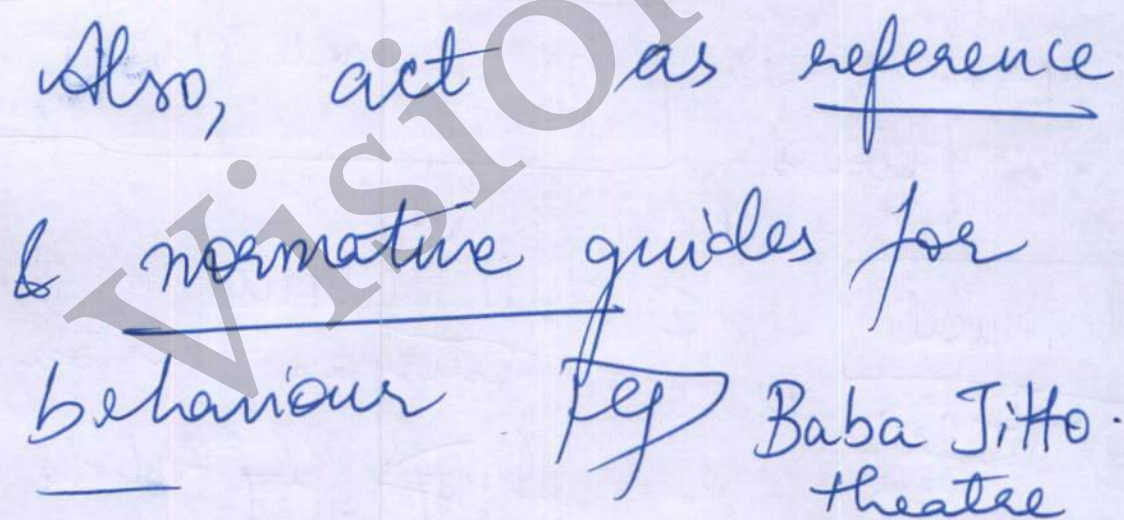 Also, act as reference
& normative guides for
behaviour eg Baba Jitto.
theatre
Vision